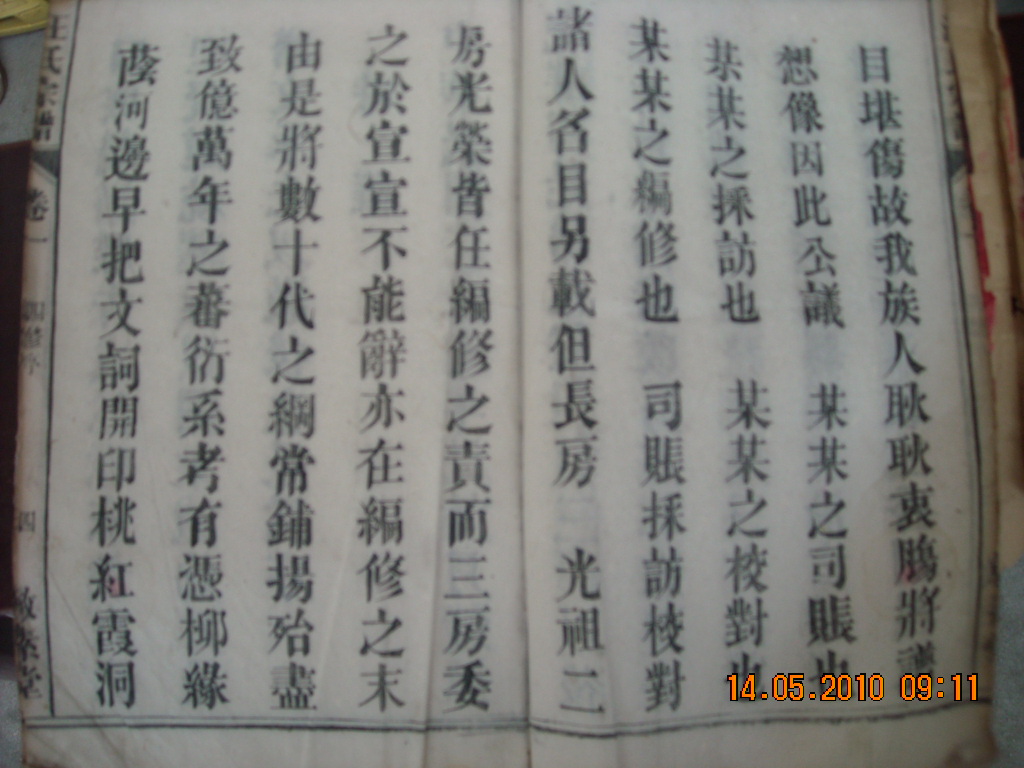 目堪傷故我族人耿耿衷膓將譜
想像因此公議 某某之司賬也
某某之採訪也 某某之校對也
某某之編修也 司賬採訪校對
諸人名目另載但長房 光祖二
房光榮皆任編修之責而三房委
之於宣宣不能辭亦在編修之末
由是將數十代之綱常鋪揚殆盡
致億萬年之蕃衍系考有憑柳緣
蔭河邊早把文詞開印桃紅霞洞
汪氏宗譜
卷一
四
14.05.2010 09:11